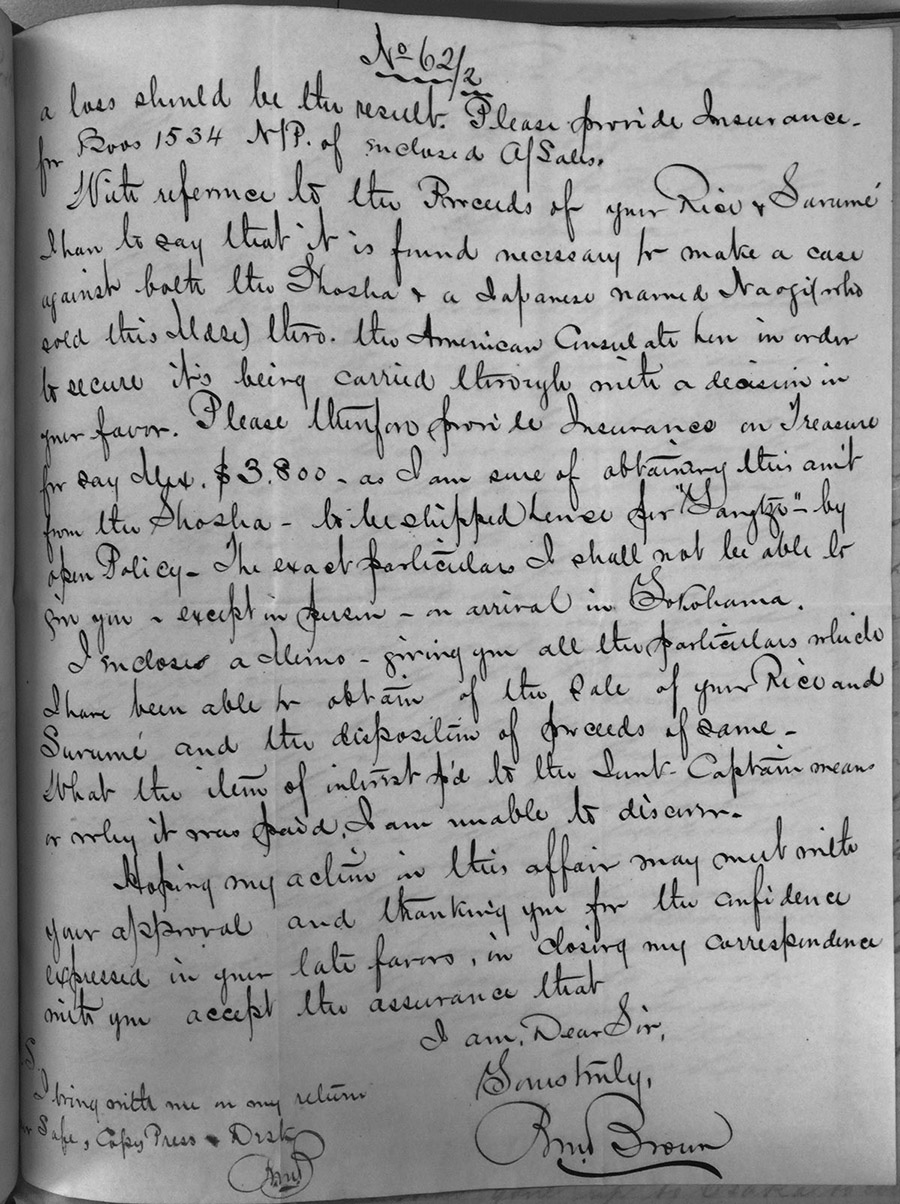 No 62/2
a loss should be the result. Please provide Insurance
for Boos 1534 N/P. of enclosed A/Sales.
With reference to the Proceeds of your Rice & Surumé
I have to say that it is found necessary to make a case
against both the Shosha & a Japanese named Naogi (who
sold this Mdse) thro. the American Consulate here in order
to secure it's being carried through with a decision in
your favor. Please therefore provide Insurance on Treasure
for say Mex. $3.800 - as I am sure of obtaining this am't
from the Shosha - to be shipped hence per "Yangtze" - by
open Policy - The exact particulars I shall not be able to
give you - except in person - on arrival in Yokohama.
I enclose a Memo - giving you all the particulars which
I have been able to obtain of the sale of your Rice and
Surumé and the disposition of proceeds of same -
What the item of interest p'd to the Captain means
or why it was paid, I am unable to discern -
Hoping my action in this affair may meet with
your approval and thanking you for the confidence
expressed in your late favors, in closing my correspondence
with you accept the assurance that
I am, Dear Sir,
Yours truly,
Brown
S.
I bring with me on my return
Safe, Copy Press & Desk